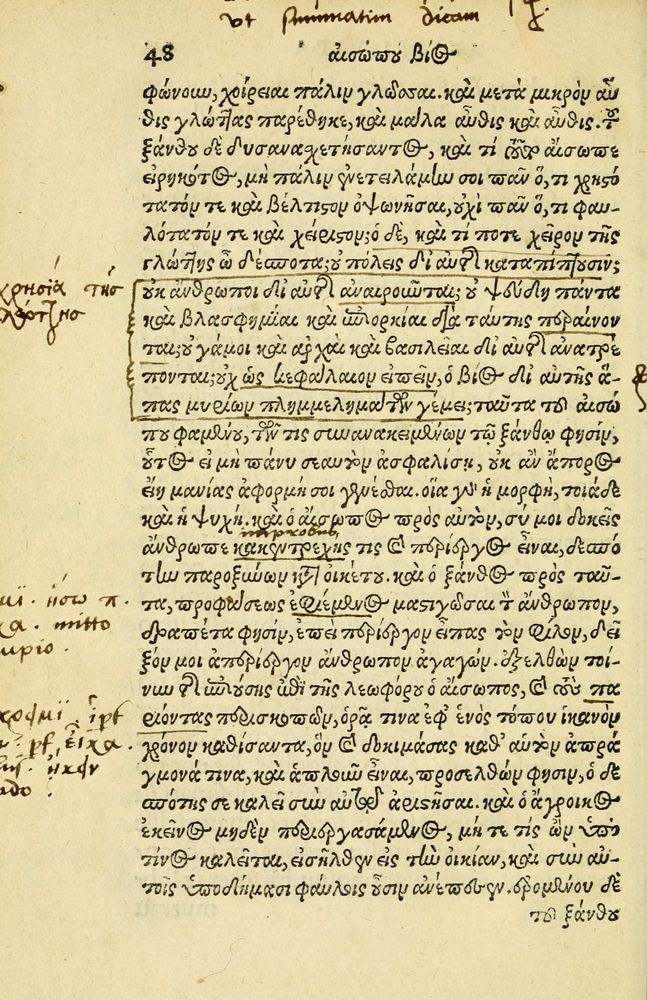 ut summatim dicam
48 αἰσώπου βίος
φώνουν, χοίρειαι πάλιν γλῶσσαι. καὶ μετὰ μικρὸν αὖ
θις γλώττας παρέθηκε, καὶ μάλα αὖθις καὶ αὖθις. τοῦ
ξάνθου δὲ δυσαναχετήσαντος, καὶ τί τοῦτο αἴσωπε
εἰρηκότος, μὴ πάλιν ἐνετειλάμην σοι πᾶν ὅ, τι χρησό
τατόν τε καὶ βέλτιστον ὀψωνῆσαι, οὐχὶ πᾶν ὅ, τι φαυ-
λότατόν τε καὶ χείριστον; ὁ δὲ, καὶ τί ποτε χεῖρον τῆς
γλώττης ὦ δέσποτα; οὐ πόλεις δι' αὐτῆς καταπίπτουσιν;
οὐκ ἄνθρωποι δι' αὐτῆς ἀναιροῦνται; οὐ ψεύδη πάντα
καὶ βλασφημίαι καὶ ἐπιορκίαι διὰ ταύτης περαίνον
ται; οὐ γάμοι καὶ ἀρχαὶ καὶ βασιλεῖαι δι' αὐτῆς ἀνατρέ
πονται; οὐχ ὡς κεφάλαιον εἰπεῖν, ὁ βίος δι' αὐτῆς ἅ-
πας μυρίων πλημμελημάτων γέμει; ταῦτα τοῦ αἰσώ
που φαμένου, τῶν τις συνανακειμένων τῷ ξάνθῳ φησίν,
οὗτος εἰ μὴ πάνυ σεαυτὸν ἀσφαλίσῃ, οὐκ ἂν ἄπορος
εἴη μανίας ἀφορμή σοι γενέσθαι. οἵα γὰρ ἡ μορφὴ, τοιάδε
καὶ ἡ ψυχή. καὶ ὁ αἴσωπος πρὸς αὐτὸν, σύ μοι δοκεῖς
ἄνθρωπε κακεντρεχής τις καὶ περίεργος εἶναι, δεσπό
την παροξύνων κατὰ οἰκέτου. καὶ ὁ ξάνθος πρὸς ταῦ-
τα, προφάσεως ἐφιέμενος μαστιγῶσαι τὸν ἄνθρωπον,
δραπέτα φησὶν, ἐπεὶ περίεργον εἶπας τὸν φίλον, δεῖ
ξόν μοι ἀπερίεργον ἄνθρωπον ἀγαγών. ἐξελθὼν τοί-
νυν τῆς ἐπιούσης ἐπὶ τῆς λεωφόρου ὁ αἴσωπος, καὶ τοὺς πα
ριόντας περισκοπῶν, ὁρᾷ τινα ἐφ' ἑνὸς τόπου ἱκανὸν
χρόνον καθίσαντα, ὃν καὶ δοκιμάσας καθ' αὑτὸν ἀπρά
γμονά τινα, καὶ ἁπλοῦν εἶναι, προσελθὼν φησὶν, ὁ δε
σπότης σε καλεῖ σὺν αὐτῷ ἀριστῆσαι. καὶ ὁ ἄγροικος
ἐκεῖνος μηδὲν περιεργασάμενος, μή τε τίς ὢν ὑπὸ
τίνος καλεῖται, εἰσῆλθεν εἰς τὴν οἰκίαν, καὶ σὺν αὐ-
τοῖς ὑποδήμασι φαύλοις οὖσιν ἀνέπεσεν. ἐρομένου δὲ
τοῦ ξάνθου